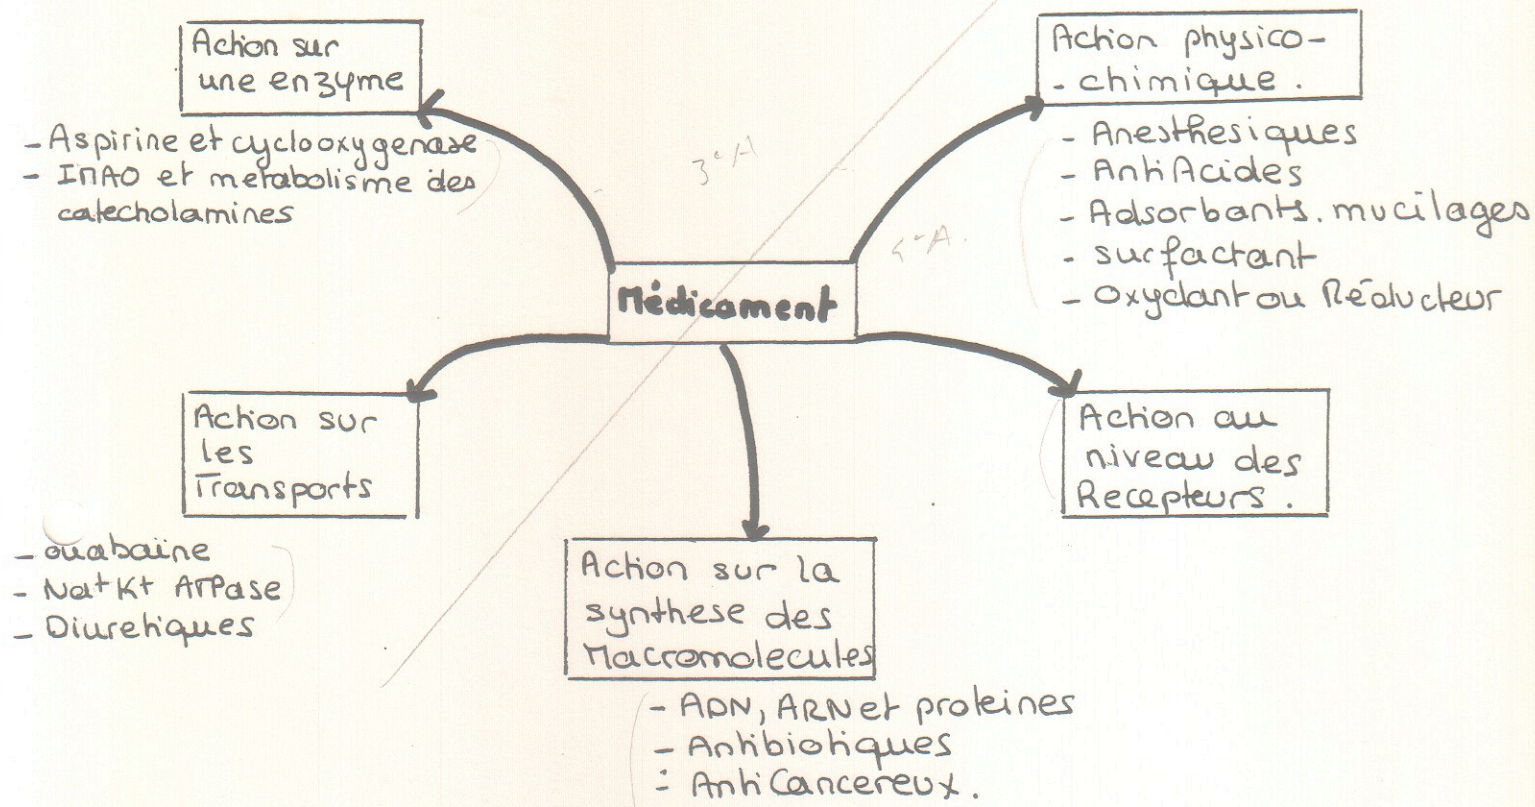 Action sur
une enzyme
- Aspirine et cyclooxygenase
- IMAO et metabolisme des
catecholamines
Action physico-
- chimique.
- Anesthesiques
- AntiAcides
- Adsorbants. mucilages
- surfactant
- Oxydant ou Réducteur
3e A
Médicament
Action sur
les
Transports
- ouabaïne
- Na+ K+ ATPase
- Diuretiques
Action sur la
synthese des
Macromolecules
- ADN, ARN et proteines
- Antibiotiques
- AntiCancereux.
Action au
niveau des
Recepteurs.